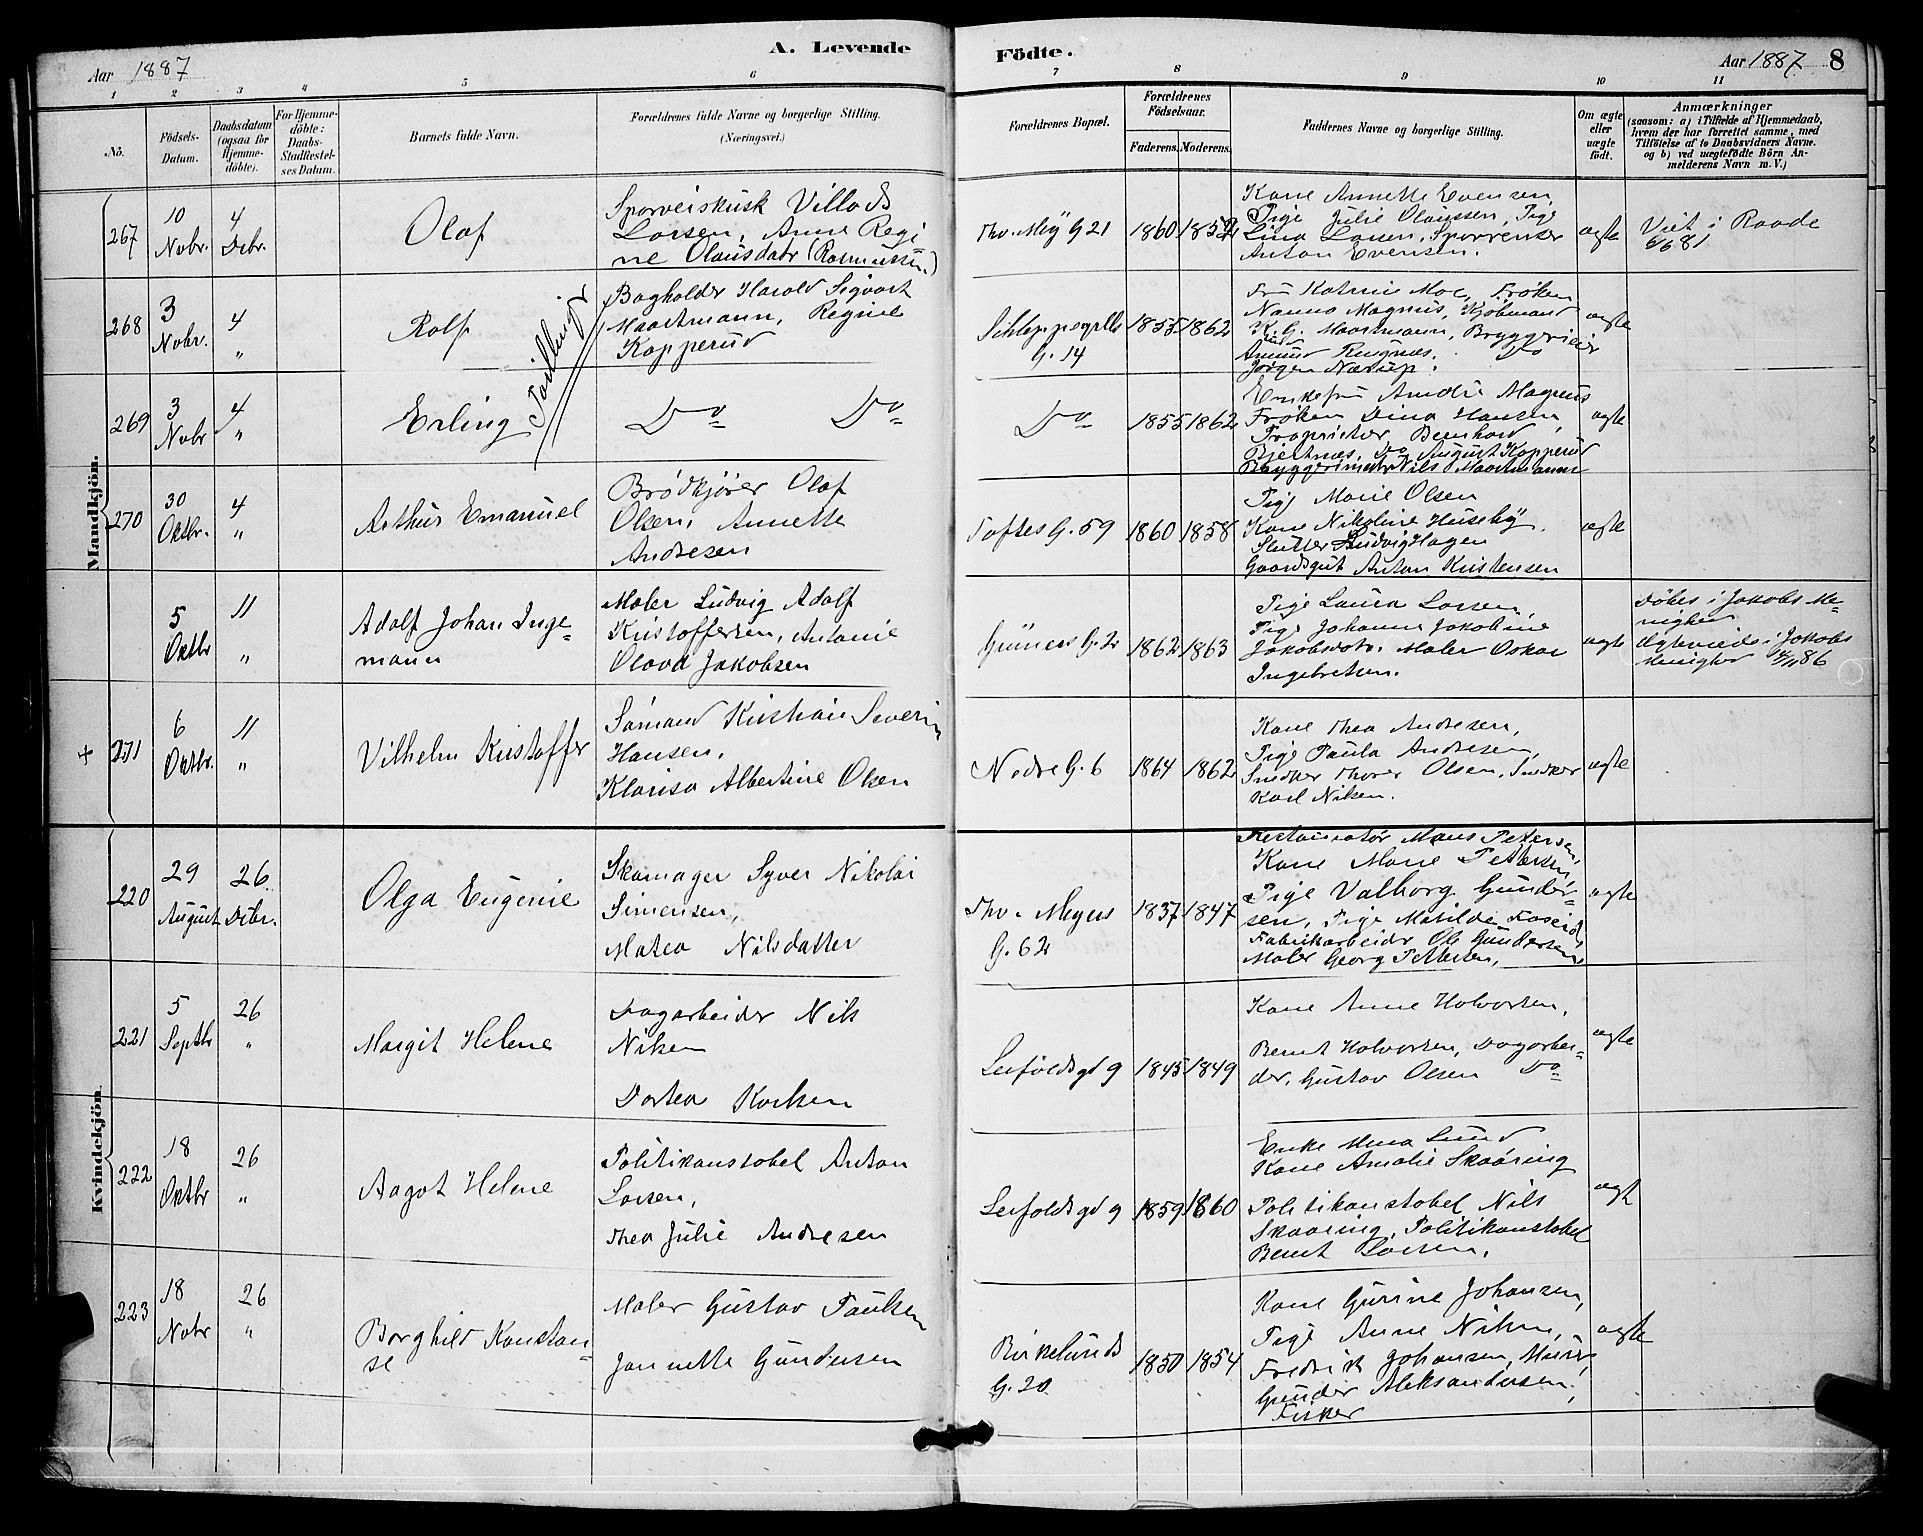 A. Levende Födte.
Aar 1887
Aar 1887. 8
1 2 3 4 5 6 7 8 9 10 11
No.
Födsels-Datum.
Daabsdatum (ogsaa for Hjemme-döbte).
For Hjemme-döbte: Daabs-Stadfæstel-ses Datum.
Barnets fulde Navn.
Forældrenes fulde Navne og borgerlige Stilling. (Næringsvei.)
Forældrenes Bopæl.
Forældrenes Födselsaar.
Faderens. Moderens.
Faddernes Navne og borgerlige Stilling.
Om ægte eller uægte födt.
Anmærkninger
(saasom: a) i Tilfælde af Hjemmedaab, hvem der har forrettet samme, med Tilföielse af to Daabsvidners Navne. og b) ved uægtefödte Börn An-melderens Navn m. V.)
Mandkjön.
267
10 Nobr.
4 Debr.
Olaf
Sporveiskusk Villads
Larsen, Anne Regi
ne Olausdatr (Rasmussen)
Thv. Mey G 21
1860 1852
Kone Annette Evensen,
Pige Julie Olaussen, Pige
Lina Larsen, Sporvensker
Anton Evensen.
ægte
Viet i Raade
6/6 81
268
3 Nobr.
4 "
Rolf
Tvillinger
Bogholder Harald Sigvart
Maartmann, Regine
Kopperud
Schleppegrells
G. 14
1855 1862
Fru Katrine Moe, Frøken
Nanna Magnus, Kjöbmand
K. G. Maartmann, Bryggerieier
Amund Ringnes, Do
Jørgen Næsup.
ægte
269
3 Nobr
4 "
Erling
Do Do
Do
1855 1862
Enkefru Amalie Magnus
Frøken Dina Hansen,
Proprietær Bernhard
Bjertnæs, Do August Kopperud
Nils Maartmann
ægte
270
30 Oktbr.
4 "
Arthur Emanuel
Brødkjører Olaf
Olsen, Annette
Andresen
Toftes G. 59
1860 1858
Pige Marie Olsen
Kone Nikoline Huseby,
Slutter Ludvig Hagen
Gaardsgut Anton Kristensen
ægte
5 Oktbr
11 "
Adolf Johan Inge-
mann
Maler Ludvig Adolf
Kristoffersen, Antonie
Olava Jakobsen
Grüners G. 2
1862 1863
Pige Laura Larsen,
Pige Johanne Jakobine
Jakobsdotr. Maler Oskar
Ingebretsen.
ægte
Döbes i Jakobs Me-
nighed
Ægteviede i Jakobs
Menighed 14/11 86
+
271
6 Oktbr.
11 "
Vilhelm Kristoffer
Sømand Kristian Severin
Hansen,
Klarisa Albertine Olsen
Nedre G. 6
1864 1862
Kone Thea Andresen,
Pige Paula Andresen,
Snedker Thorer Olsen, Snedker
Karl Nilsen.
ægte
Kvindekjön
220
29 August
26 Debr.
Olga Eugenie
Skomager Syver Nikolai
Simensen,
Matea Nilsdatter
Thv. Meyers
G. 62
1837 1847
Restauratør Mons Pettersen,
Kone Marie Pettersen,
Pige Valborg Gunder-
sen, Pige Matilde
Fabrikarbeider Ole Gundersen,
Maler Georg Pettersen,
ægte
221
5 Septbr
26 "
Margit Helene
Dagarbeider Nils
Nilsen
Dortea Karlsen
Leirfoldsgd 9
1845 1849
Kone Anne Halvorsen,
Bernt Halvorsen, Dagarbei-
der, Gustav Olsen Do
ægte
222
18 Oktbr
26 "
Aagot Helene
Politikonstabel Anton
Larsen,
Thea Julie Andresen
Leirfoldsgd 9
1859 1860
Enke Mina Lund
Kone Amalie Skaaring
Politikonstabel Nils
Skaaring, Politikonstabel
Bernt Larsen,
ægt
223
18 Nobr
26 "
Borghild Konstan-
se
Maler Gustav Paulsen
Jannette Gundersen
Birkelunds
G. 20
1850 1854
Kone Gurine Johansen,
Pige Anne Nilsen,
Fredrik Johansen, Murer
Gunder Aleksandersen,
Fisker
ægte